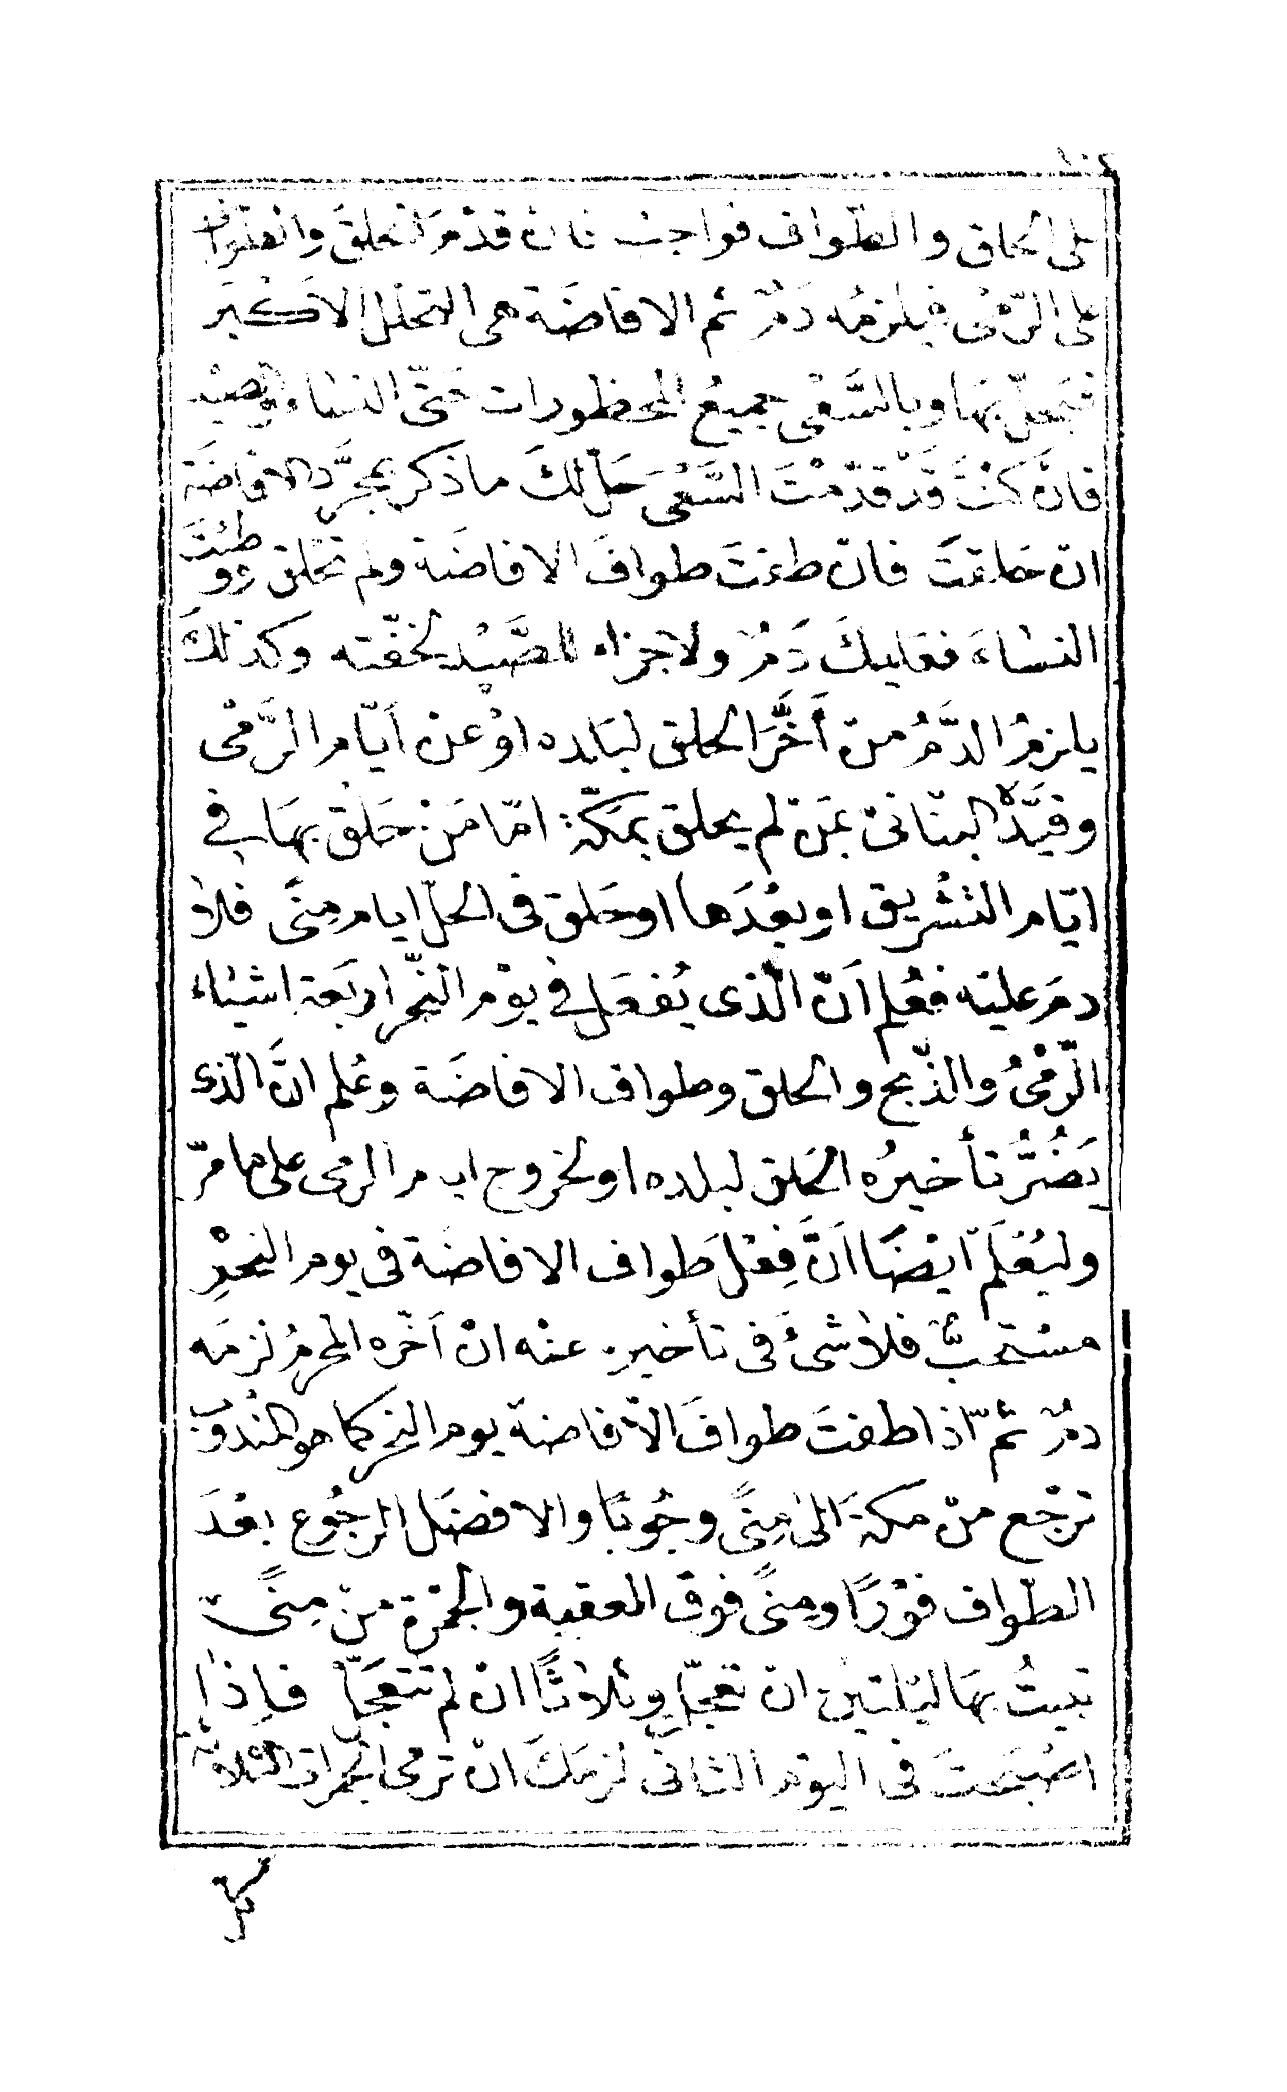 ١٠٤
على الحلق والطّواف فواجب فان قدّمَ الحلقَ والطّواف
على الرّمْىِ فيلزمُه دَمٌ ثم الافاضَة هى التحلل الاكْبَر
فيَحلّ بهَا وبالسَّعْىِ جميعُ المحظورات حَتّى النسَاء والصيْد
فانْ كنْتَ قَدْ قدّمْتَ السَّعْىَ حَلّ لكَ ما ذكر بمجرَّد الافاضَة
انْ حَلقتَ فانْ طفتَ طوافَ الافاضَة ولم تحْلق ووطئتَ
النسَاءَ فعَليكَ دَمٌ ولا جزاء للصَّيْد لخفّته وكذلكَ
يلزمُ الدَّمُ منْ أخَّرَ الحلق لبَلده اوْ عَنْ ايّام الرَّمْى
وقيَّدَهُ البنّانىّ بمَنْ لم يحلق بمكّة امّا مَنْ حَلَق بهَا فى
ايّام التشْريق او بعْدَها او حَلق فى الحلّ ايام مِنًى فلا
دمَ عليْه فعُلم اَنّ الّذى يُفعَل فى يوْم النّحْر اربَعة اشيَاء
الرّمْىُ والذّبح والحلق وطواف الافاضَة وعُلم انَّ الّذى
يَضُرُّ تأخيرُه الحَلق لبلده او لخروج ايام الرمى على ما مرّ
وليُعْلَمْ ايْضًا اَنَّ فِعْلَ طواف الافاضَة فى يوم النحْرِ
مسْتحبٌّ فلا شىْءَ فى تأخيره عنْه انْ اَخّره المحْرمُ لزمَه
دمٌ ثمّ اذا طفتَ طوافَ الافاضَة يوم النحر كما هو المنْدُوب
ترْجع منْ مكةَ الى مِنًى وجُوبًا والافضَل الرجُوع بعْدَ
الطّواف فوْرًا ومِنًى فوقَ العقبة والجمْرَة منْ مِنًى
تبيتُ بهَا ليْلتيْن انْ تعجّل وثلاثًا انْ لم تتعجّل فاِذا
اصْبَحتَ فى اليوْم الثانى لزمَكَ انْ ترمى الجمرات الثلاثَ